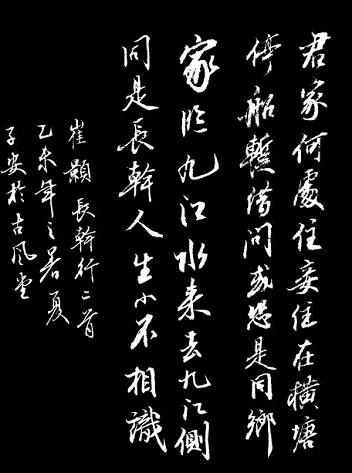 君家何處住妾住在橫塘
停船暫借問或恐是同鄉
家臨九江水來去九江側
同是長幹人生小不相識
崔顥長幹行二首
乙未年之暑夏
子安於古風堂